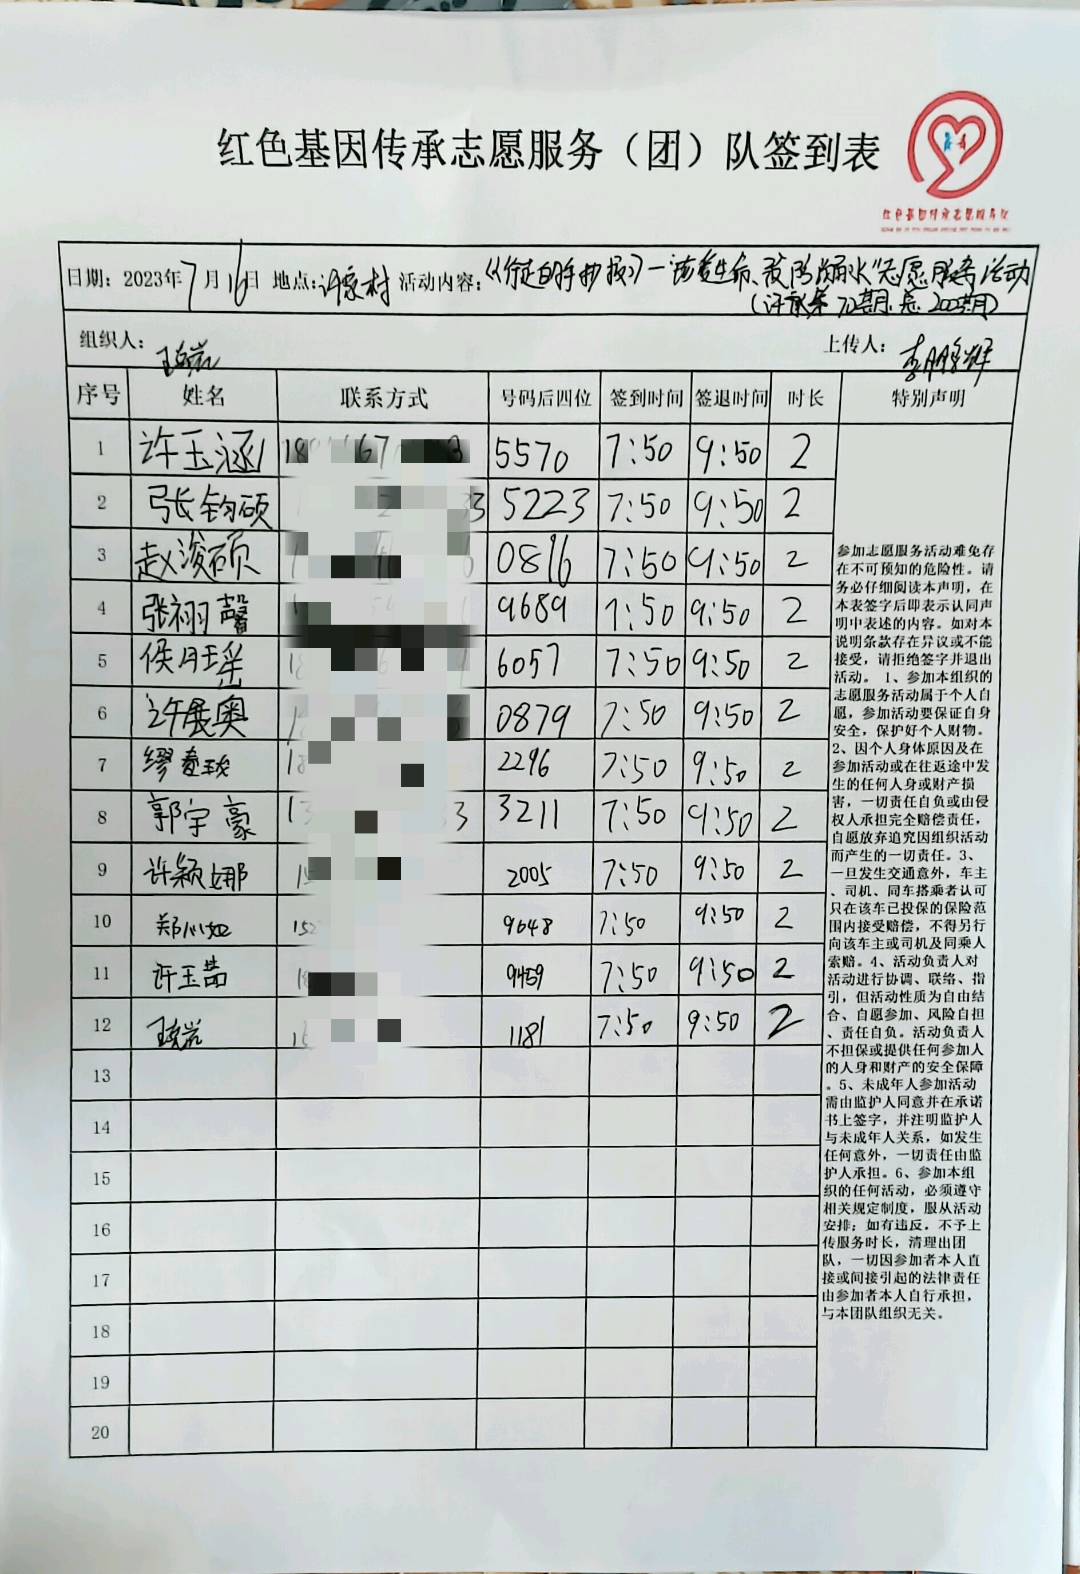 红色基因传承志愿服务（团）队签到表
红色基因传承志愿服务队
日期：2023年7月16日 地点：许家村 活动内容：《行走的手抄报》—"珍爱生命、预防溺水"志愿服务活动
（许家第72期 总200期）
组织人： 上传人：李朋辉
序号 姓名 联系方式 号码后四位 签到时间 签退时间 时长 特别声明
1 许玉涵 5570 7:50 9:50 2
2 张钧硕 5223 7:50 9:50 2
3 赵浚硕 0896 7:50 9:50 2
4 张栩馨 9689 7:50 9:50 2
5 侯月瑶 6057 7:50 9:50 2
6 许展奥 0879 7:50 9:50 2
7 缪 2296 7:50 9:50 2
8 郭宇豪 3211 7:50 9:50 2
9 许颖娜 2005 7:50 9:50 2
10 郑心如 9648 7:50 9:50 2
11 许玉喆 9459 7:50 9:50 2
12 1181 7:50 9:50 2
13
14
15
16
17
18
19
20
参加志愿服务活动难免存
在不可预知的危险性。请
务必仔细阅读本声明，在
本表签字后即表示认同声
明中表述的内容。如对本
说明条款存在异议或不能
接受，请拒绝签字并退出
活动。 1、参加本组织的
志愿服务活动属于个人自
愿，参加活动要保证自身
安全，保护好个人财物。
2、因个人身体原因及在
参加活动或在往返途中发
生的任何人身或财产损
害，一切责任自负或由侵
权人承担完全赔偿责任，
自愿放弃追究因组织活动
而产生的一切责任。3、
一旦发生交通意外，车主
、司机、同车搭乘者认可
只在该车已投保的保险范
围内接受赔偿，不得另行
向该车主或司机及同乘人
索赔。4、活动负责人对
活动进行协调、联络、指
引，但活动性质为自由结
合、自愿参加、风险自担
、责任自负。活动负责人
不担保或提供任何参加人
的人身和财产的安全保障
。5、未成年人参加活动
需由监护人同意并在承诺
书上签字，并注明监护人
与未成年人关系，如发生
任何意外，一切责任由监
护人承担。6、参加本组
织的任何活动，必须遵守
相关规定制度，服从活动
安排；如有违反，不予上
传服务时长，清理出团
队，一切因参加者本人直
接或间接引起的法律责任
由参加者本人自行承担，
与本团队组织无关。